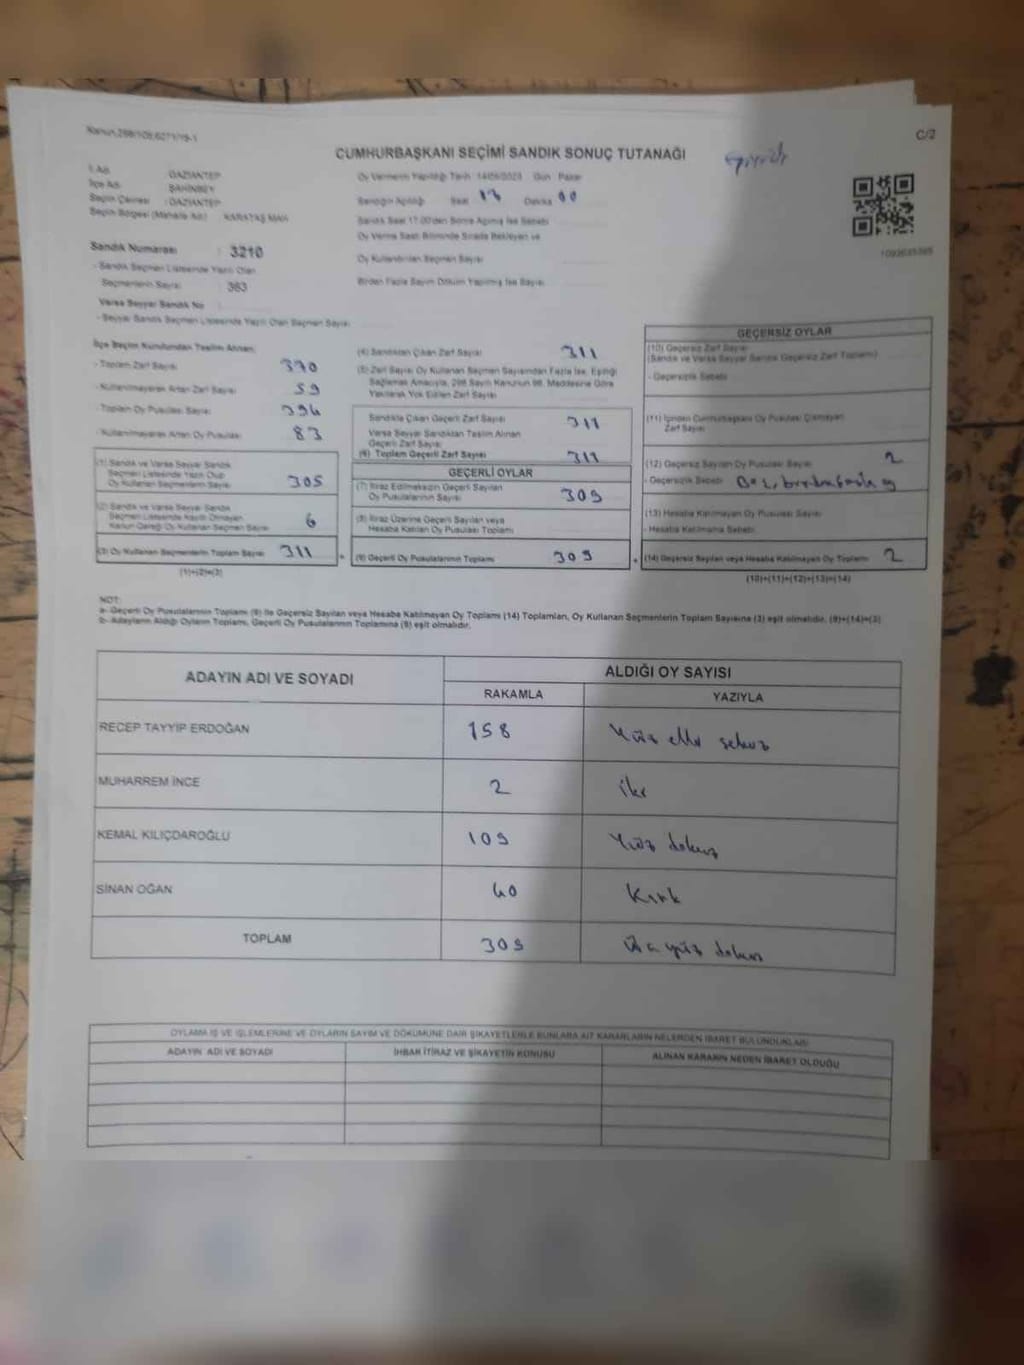 Kanun:298/105;6271/19-1
C/2
CUMHURBAŞKANI SEÇİMİ SANDIK SONUÇ TUTANAĞI
İl Adı : GAZİANTEP
İlçe Adı : ŞAHİNBEY
Seçim Çevresi : GAZİANTEP
Seçim Bölgesi (Mahalle Adı) : KARATAŞ MAH
Sandık Numarası : 3210
- Sandık Seçmen Listesinde Yazılı Olan
Seçmenlerin Sayısı : 363
Varsa Seyyar Sandık No
- Seyyar Sandık Seçmen Listesinde Yazılı Olan Seçmen Sayısı
Oy Vermenin Yapıldığı Tarih 14/05/2023 Gün Pazar
Sandığın Açıldığı Saat 17 Dakika 00
Sandık Saat 17.00'den Sonra Açılmış İse Sebebi
Oy Verme Saati Bitiminde Sırada Bekleyen ve
Oy Kullandırılan Seçmen Sayısı
Birden Fazla Sayım Döküm Yapılmış İse Sayısı
İlçe Seçim Kurulundan Teslim Alınan:
- Toplam Zarf Sayısı 370
- Kullanılmayarak Artan Zarf Sayısı 59
- Toplam Oy Pusulası Sayısı 394
- Kullanılmayarak Artan Oy Pusulası 83
(1) Sandık ve Varsa Seyyar Sandık
Seçmen Listesinde Yazılı Olup
Oy Kullanan Seçmenlerin Sayısı 305
(2) Sandık ve Varsa Seyyar Sandık
Seçmen Listesinde Kaydı Olmayan
Kanun Gereği Oy Kullanan Seçmen Sayısı 6
(3) Oy Kullanan Seçmenlerin Toplam Sayısı 311
(1)+(2)=(3)
(4) Sandıktan Çıkan Zarf Sayısı 311
(5) Zarf Sayısı Oy Kullanan Seçmen Sayısından Fazla İse, Eşitliği
Sağlamak Amacıyla, 298 Sayılı Kanunun 98. Maddesine Göre
Yakılarak Yok Edilen Zarf Sayısı
Sandıkta Çıkan Geçerli Zarf Sayısı 311
Varsa Seyyar Sandıktan Teslim Alınan
Geçerli Zarf Sayısı
(6) Toplam Geçerli Zarf Sayısı 311
GEÇERLİ OYLAR
(7) İtiraz Edilmeksizin Geçerli Sayılan
Oy Pusulalarının Sayısı 309
(8) İtiraz Üzerine Geçerli Sayılan veya
Hesaba Katılan Oy Pusulası Toplamı
(9) Geçerli Oy Pusulalarının Toplamı 309
GEÇERSİZ OYLAR
(10) Geçersiz Zarf Sayısı
(Sandık ve Varsa Seyyar Sandık Geçersiz Zarf Toplamı)
- Geçersizlik Sebebi
(11) İçinden Cumhurbaşkanı Oy Pusulası Çıkmayan
Zarf Sayısı
(12) Geçersiz Sayılan Oy Pusulası Sayısı 2
- Geçersizlik Sebebi
(13) Hesaba Katılmayan Oy Pusulası Sayısı
- Hesaba Katılmama Sebebi
(14) Geçersiz Sayılan veya Hesaba Katılmayan Oy Toplamı 2
(10)+(11)+(12)+(13)=(14)
NOT:
a- Geçerli Oy Pusulalarının Toplamı (9) ile Geçersiz Sayılan veya Hesaba Katılmayan Oy Toplamı (14) Toplamları, Oy Kullanan Seçmenlerin Toplam Sayısına (3) eşit olmalıdır. (9)+(14)=(3)
b- Adayların Aldığı Oyların Toplamı, Geçerli Oy Pusulalarının Toplamına (9) eşit olmalıdır.
ADAYIN ADI VE SOYADI ALDIĞI OY SAYISI
RAKAMLA YAZIYLA
RECEP TAYYİP ERDOĞAN 158 Yüz elli sekiz
MUHARREM İNCE 2 iki
KEMAL KILIÇDAROĞLU 109 Yüz dokuz
SİNAN OĞAN 40 Kırk
TOPLAM 309 Üç yüz dokuz
OYLAMA İŞ VE İŞLEMLERİNE VE OYLARIN SAYIM VE DÖKÜMÜNE DAİR ŞİKAYETLERLE BUNLARA AİT KARARLARIN NELERDEN İBARET BULUNDUKLARI
ADAYIN ADI VE SOYADI İHBAR İTİRAZ VE ŞİKAYETİN KONUSU ALINAN KARARIN NEDEN İBARET OLDUĞU